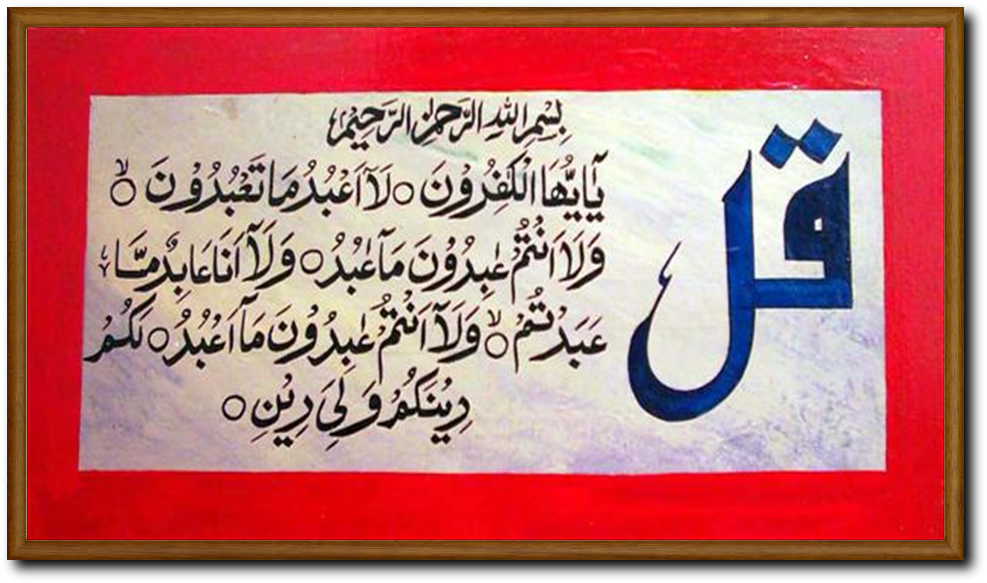 بِسْمِ اللهِ الرَّحْمٰنِ الرَّحِيْمِ
قُلْ
يٰٓاَيُّهَا الْكٰفِرُوْنَ ○ لَآ اَعْبُدُ مَا تَعْبُدُوْنَ ○
وَلَآ اَنْتُمْ عٰبِدُوْنَ مَآ اَعْبُدُ ○ وَلَآ اَنَا عَابِدٌ مَّا
عَبَدْتُّمْ ○ وَلَآ اَنْتُمْ عٰبِدُوْنَ مَآ اَعْبُدُ ○ لَكُمْ
دِيْنُكُمْ وَلِيَ دِيْنِ ○